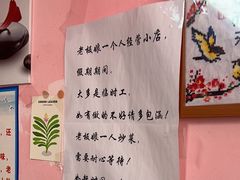 老板娘一个人经营小店,
假期期间,
大多是临时工,
如有做的不好请多包涵!
老板娘一人炒菜,
需要耐心等待!
还
味
老